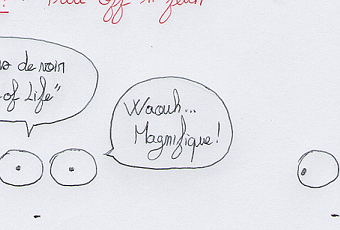 off in
de noir
of Life"
Waouh...
Magnifique!